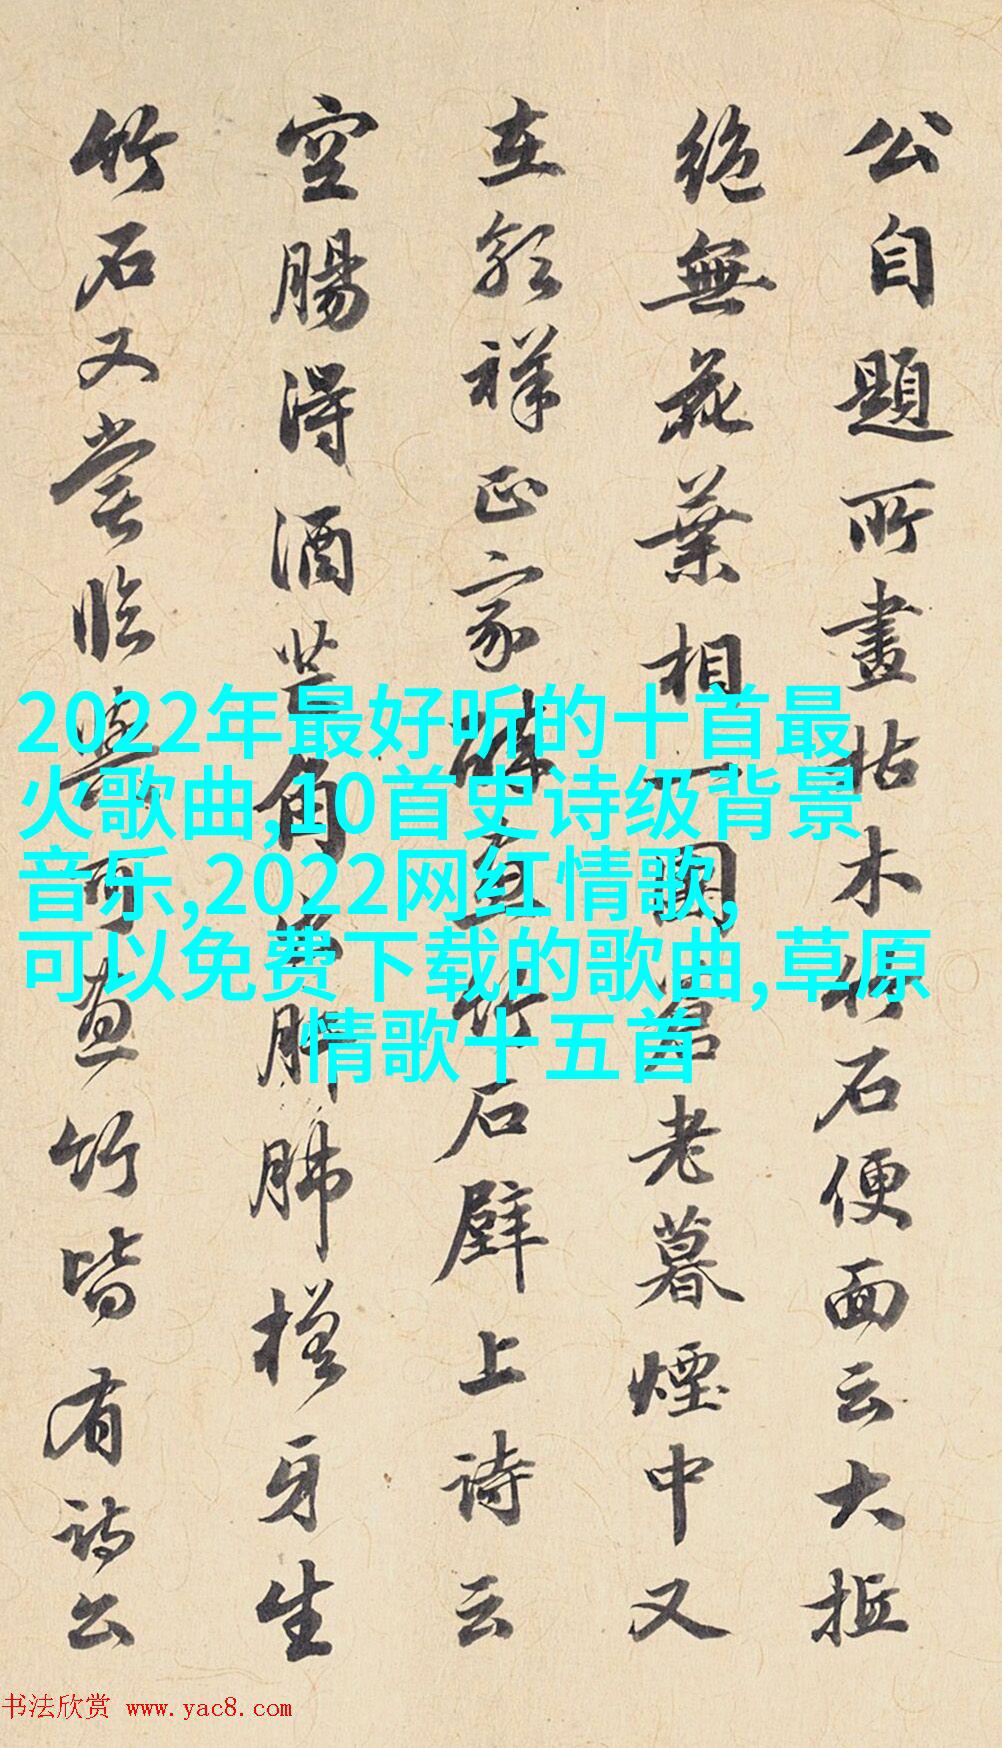 公自題所畫枯木竹石便面云大抵
絶無花葉相一團蒼老暮煙中又
在郭祥正家醉畫竹石壁上詩云
空腸得酒芒角出肝肺槎牙生
竹石又嘗臨與可畫竹皆有詩公
2022年最好听的十首最
火歌曲,10首史诗级背景
音乐,2022网红情歌,
可以免费下载的歌曲,草原
情歌十五首
书法欣赏 www.yac8.com